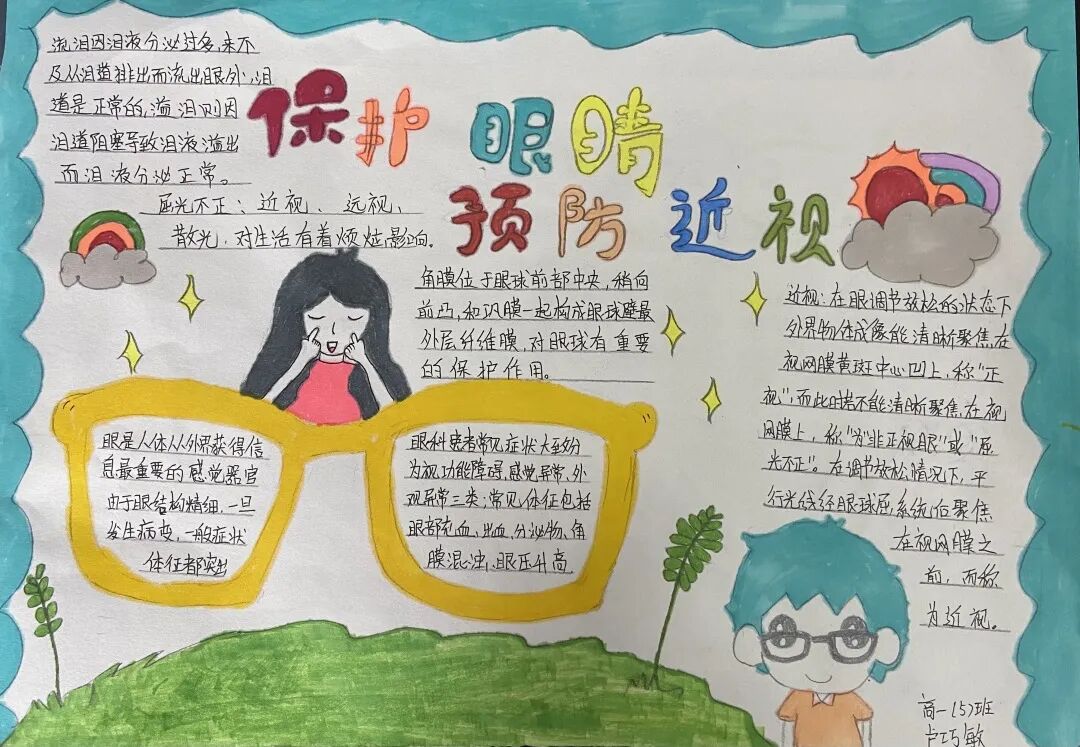 流泪因泪液分泌过多,未不
及从泪道排出而流出眼外,泪
道是正常的,溢泪则因
泪道阻塞导致泪液溢出
而泪液分泌正常。
屈光不正:近视、远视、
散光,对生活有着烦
影响.
保护 眼睛
预防近视
角膜位于眼球前部中央,稍向
前凸,和巩膜一起构成眼球
最
外层纤维膜,对眼球有重要
的保护作用。
近视:在眼调节放松的状态下
外界物体成像能清晰聚焦在
视网膜黄斑中心凹上,称"正
视",而此时若不能清晰聚焦在视
网膜上,称"为"非正视眼"或"屈
光不正"。在调节放松情况下,平
行光线经眼球屈系统后聚焦
在视网膜之
前,而称
为近视。
眼是人体从外界获得信
息最重要的感觉器官
由于眼结构精细,一旦
发生病变,一般症状
体征都突出
眼科患者常见症状大致分
为视功能障碍,感觉异常、外
观异常三类;常见体征包括
眼部充血,出血,分泌物、角
膜混浊、眼压升高
高一(5)班
卢巧敏